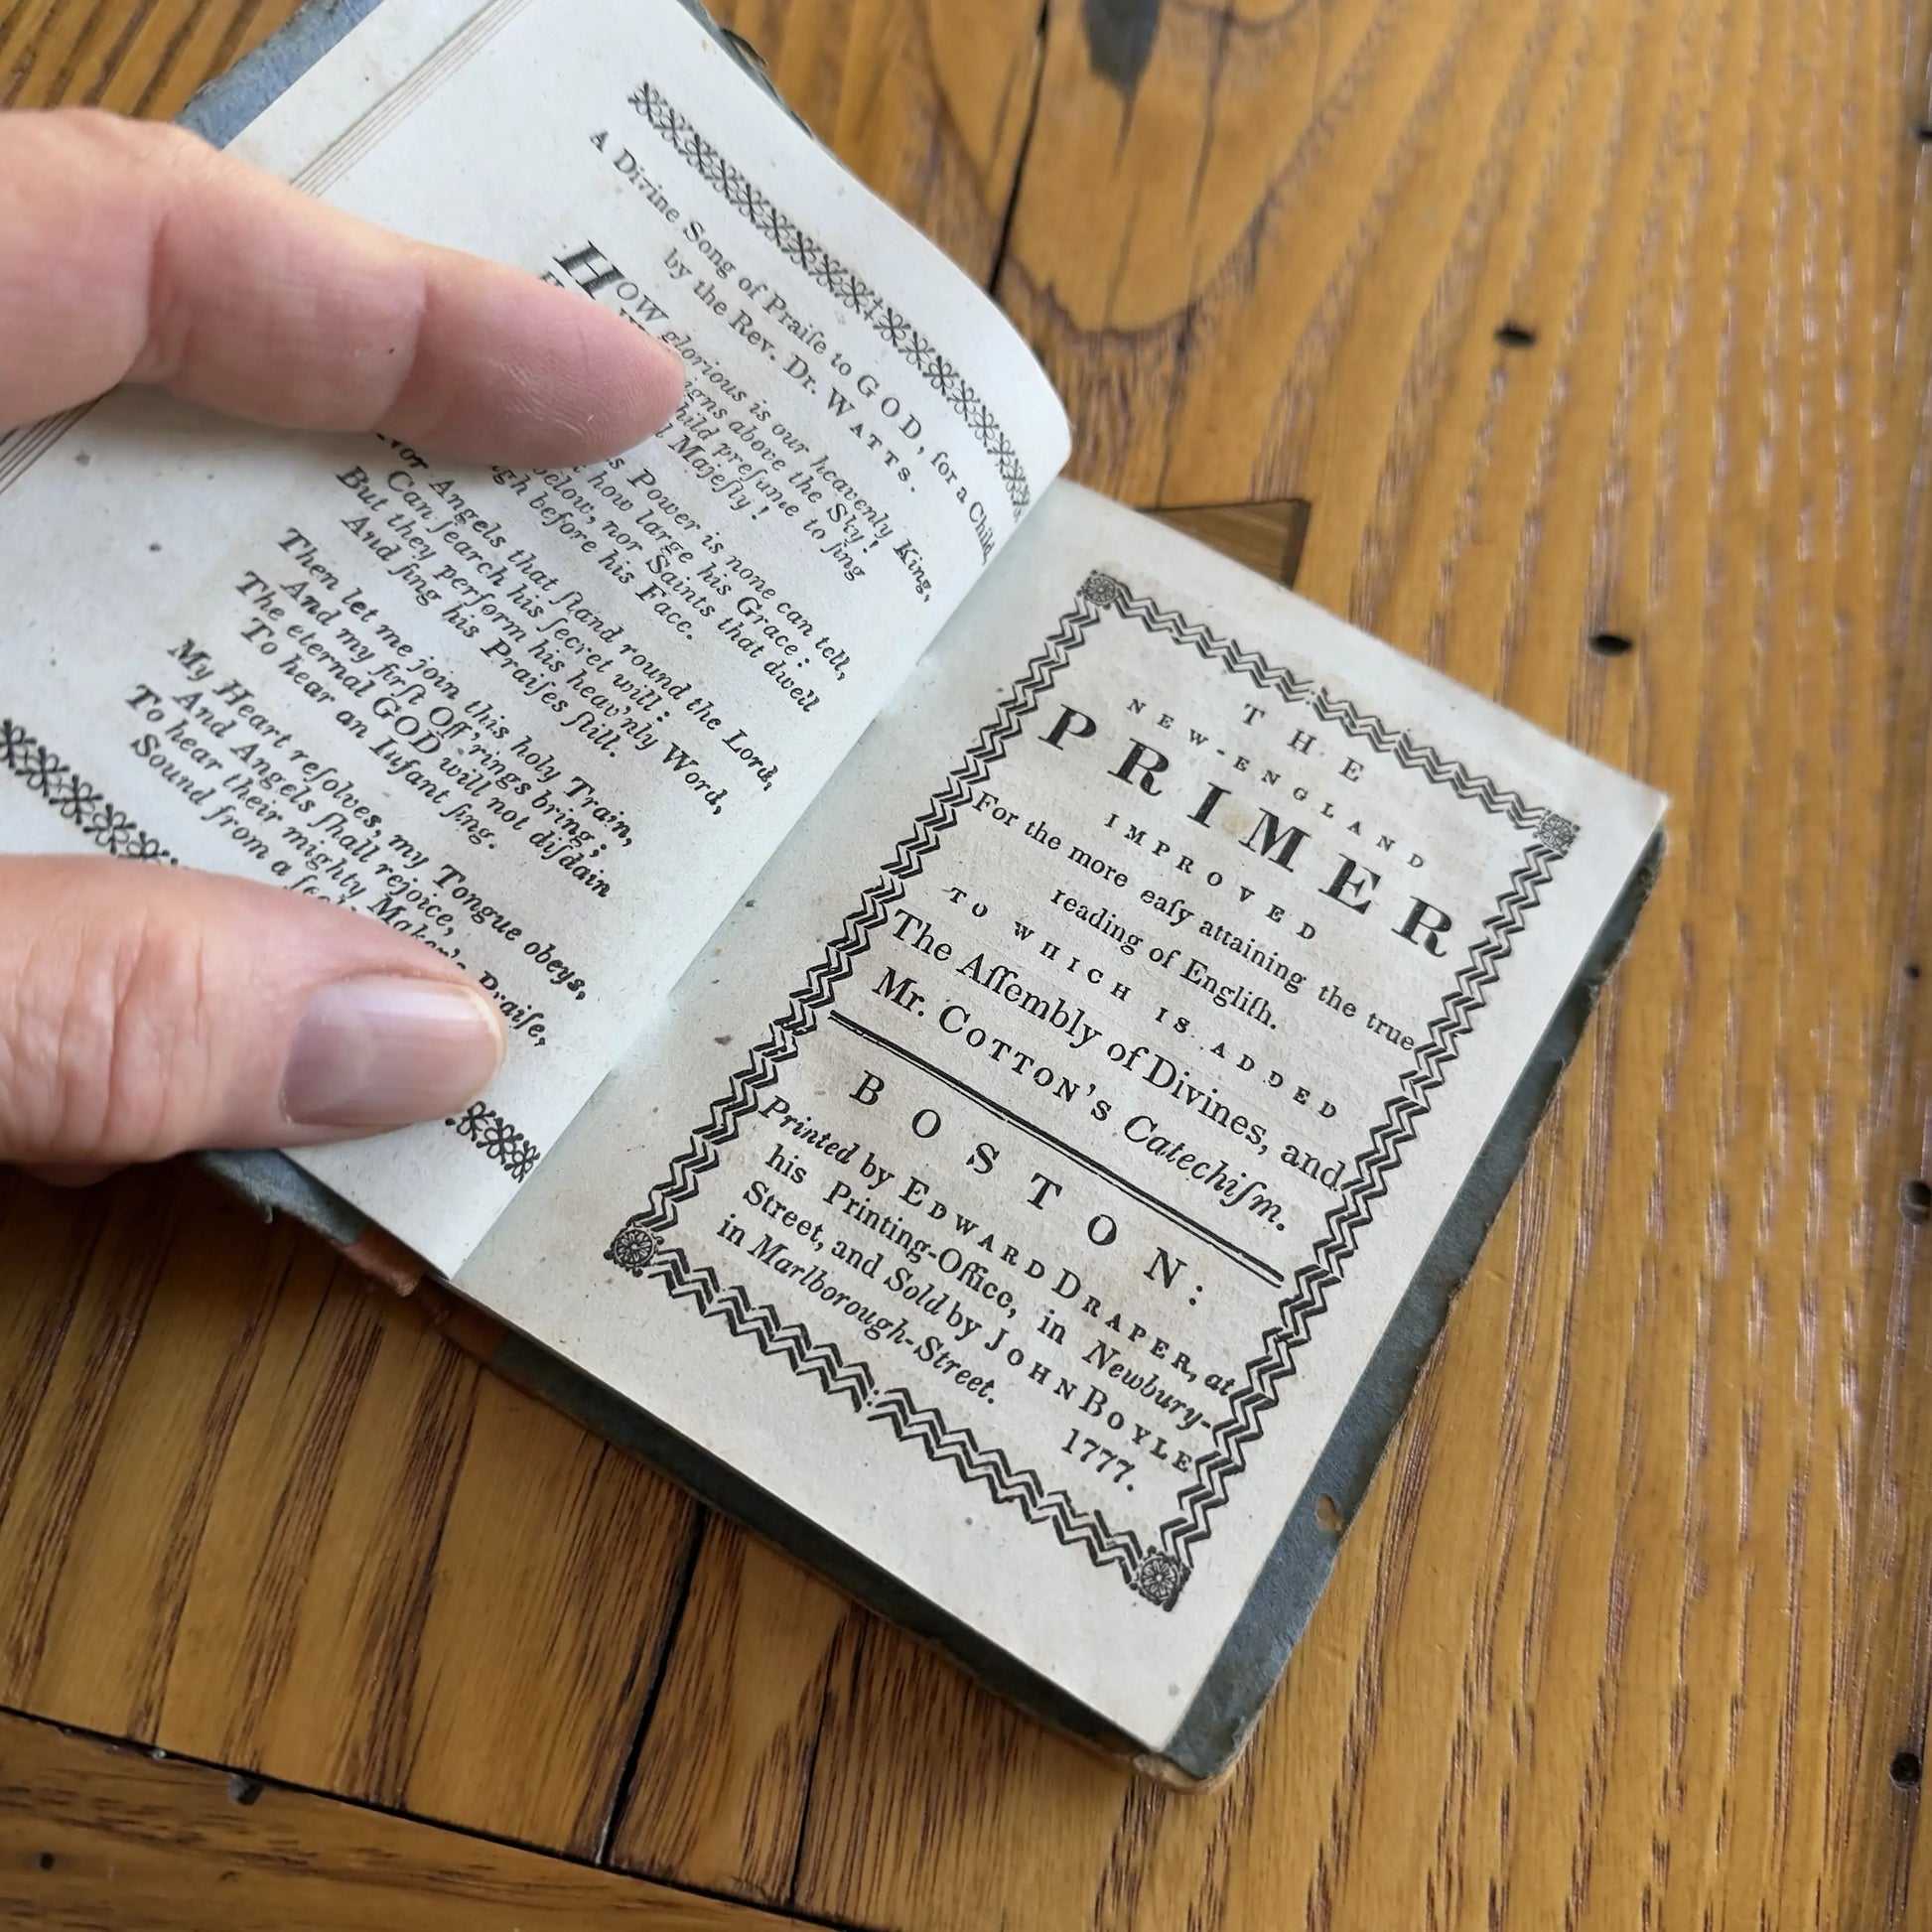 A Divine Song of Praiſe to GOD, for a Child,
by the Rev. Dr. WATTS.
HOW glorious is our heavenly King,
above the Sky!
preſume to ſing
Majeſty!
Power is none can tell,
how large his Grace:
below, nor Saints that dwell
before his Face.
Nor Angels that ſtand round the Lord,
Can ſearch his ſecret will:
But they perform his heav'nly Word,
And ſing his Praiſes ſtill.
Then let me join this holy Train,
And my firſt Off'rings bring;
The eternal GOD will not diſdain
To hear an Infant ſing.
My Heart reſolves, my Tongue obeys,
And Angels ſhall rejoice,
To hear their mighty Maker's Praiſe,
Sound from a
THE
NEW-ENGLAND
PRIMER
IMPROVED
For the more eaſy attaining the true
reading of Engliſh.
TO WHICH IS ADDED
The Aſſembly of Divines, and
Mr. COTTON's Catechiſm.
BOSTON:
Printed by EDWARD DRAPER, at
his Printing-Office, in Newbury-
Street, and Sold by JOHN BOYLE
in Marlborough-Street. 1777.